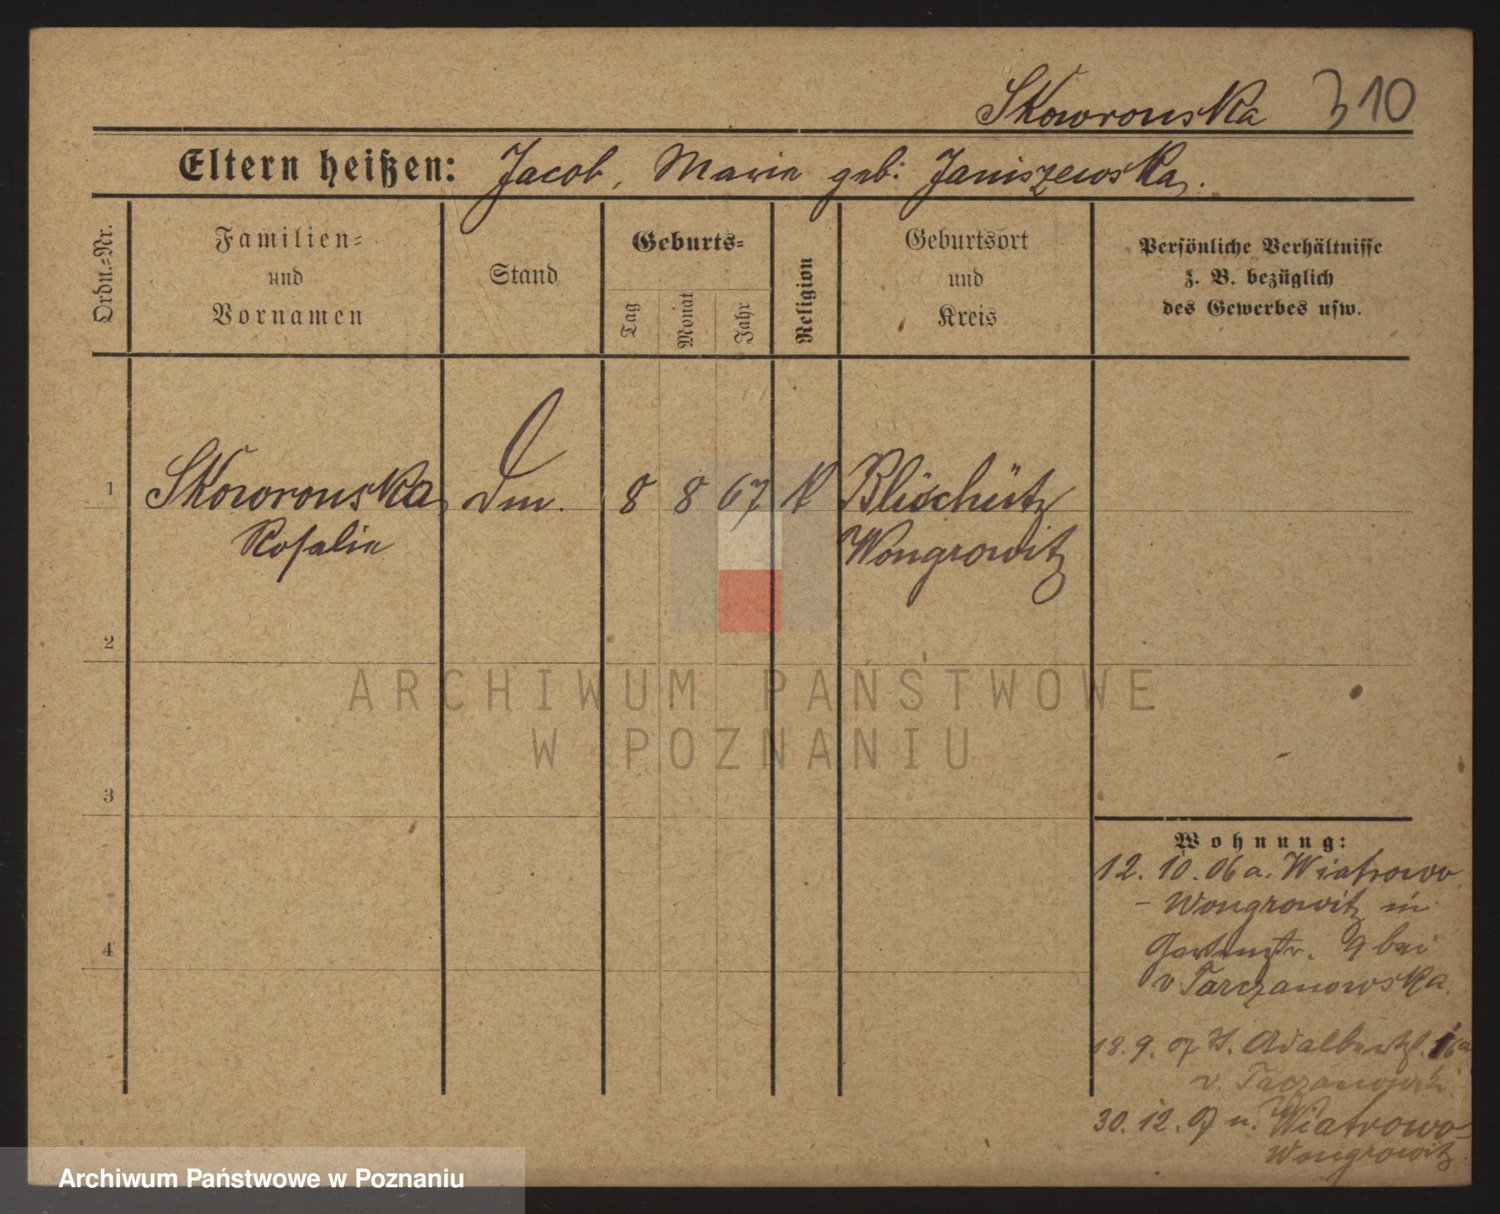 Skowronska 310
Eltern heißen: Jacob, Maria geb: Janiszewska.
Ordn.-Nr.
Familien-
und
Vornamen
Stand
Geburts-
Tag
Monat
Jahr
Religion
Geburtsort
und
Kreis
Persönliche Verhältnisse
z. B. bezüglich
des Gewerbes usw.
1 Skowronska Dm. 8 8 67 K Blischütz
Rosalie Wongrowitz
2
3
4
ARCHIWUM PAŃSTWOWE
W POZNANIU
Wohnung:
12. 10. 06 a. Wiatrowo
- Wongrowitz in
Gartenstr. 9 bei
v. Tarczanowska
18. 9. 07 St. Adalbertst. 16a
v. Taczanowski
30. 12. 07 n. Wiatrowo-
Wongrowitz
Archiwum Państwowe w Poznaniu